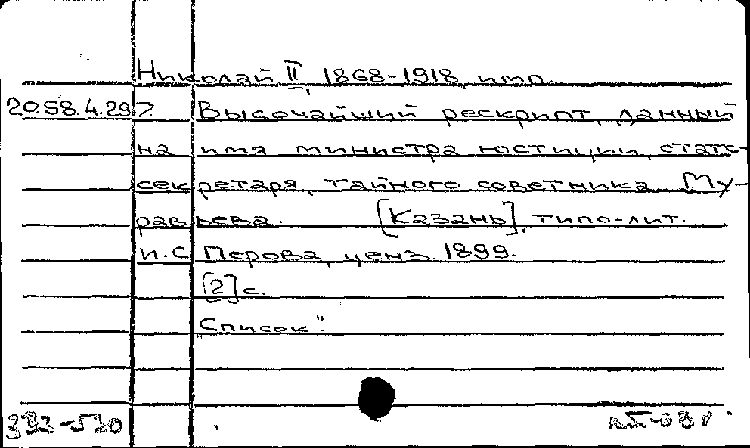 Николай II, 1868-1918, имп.
20.58.4.297. Высочайший рескрипт, данный
на имя министра юстиции, статс-
секретаря, тайного советника Му-
равьева. [Казань], типо-лит.
И.С. Перова, ценз. 1899.
[2] с.
"Список".